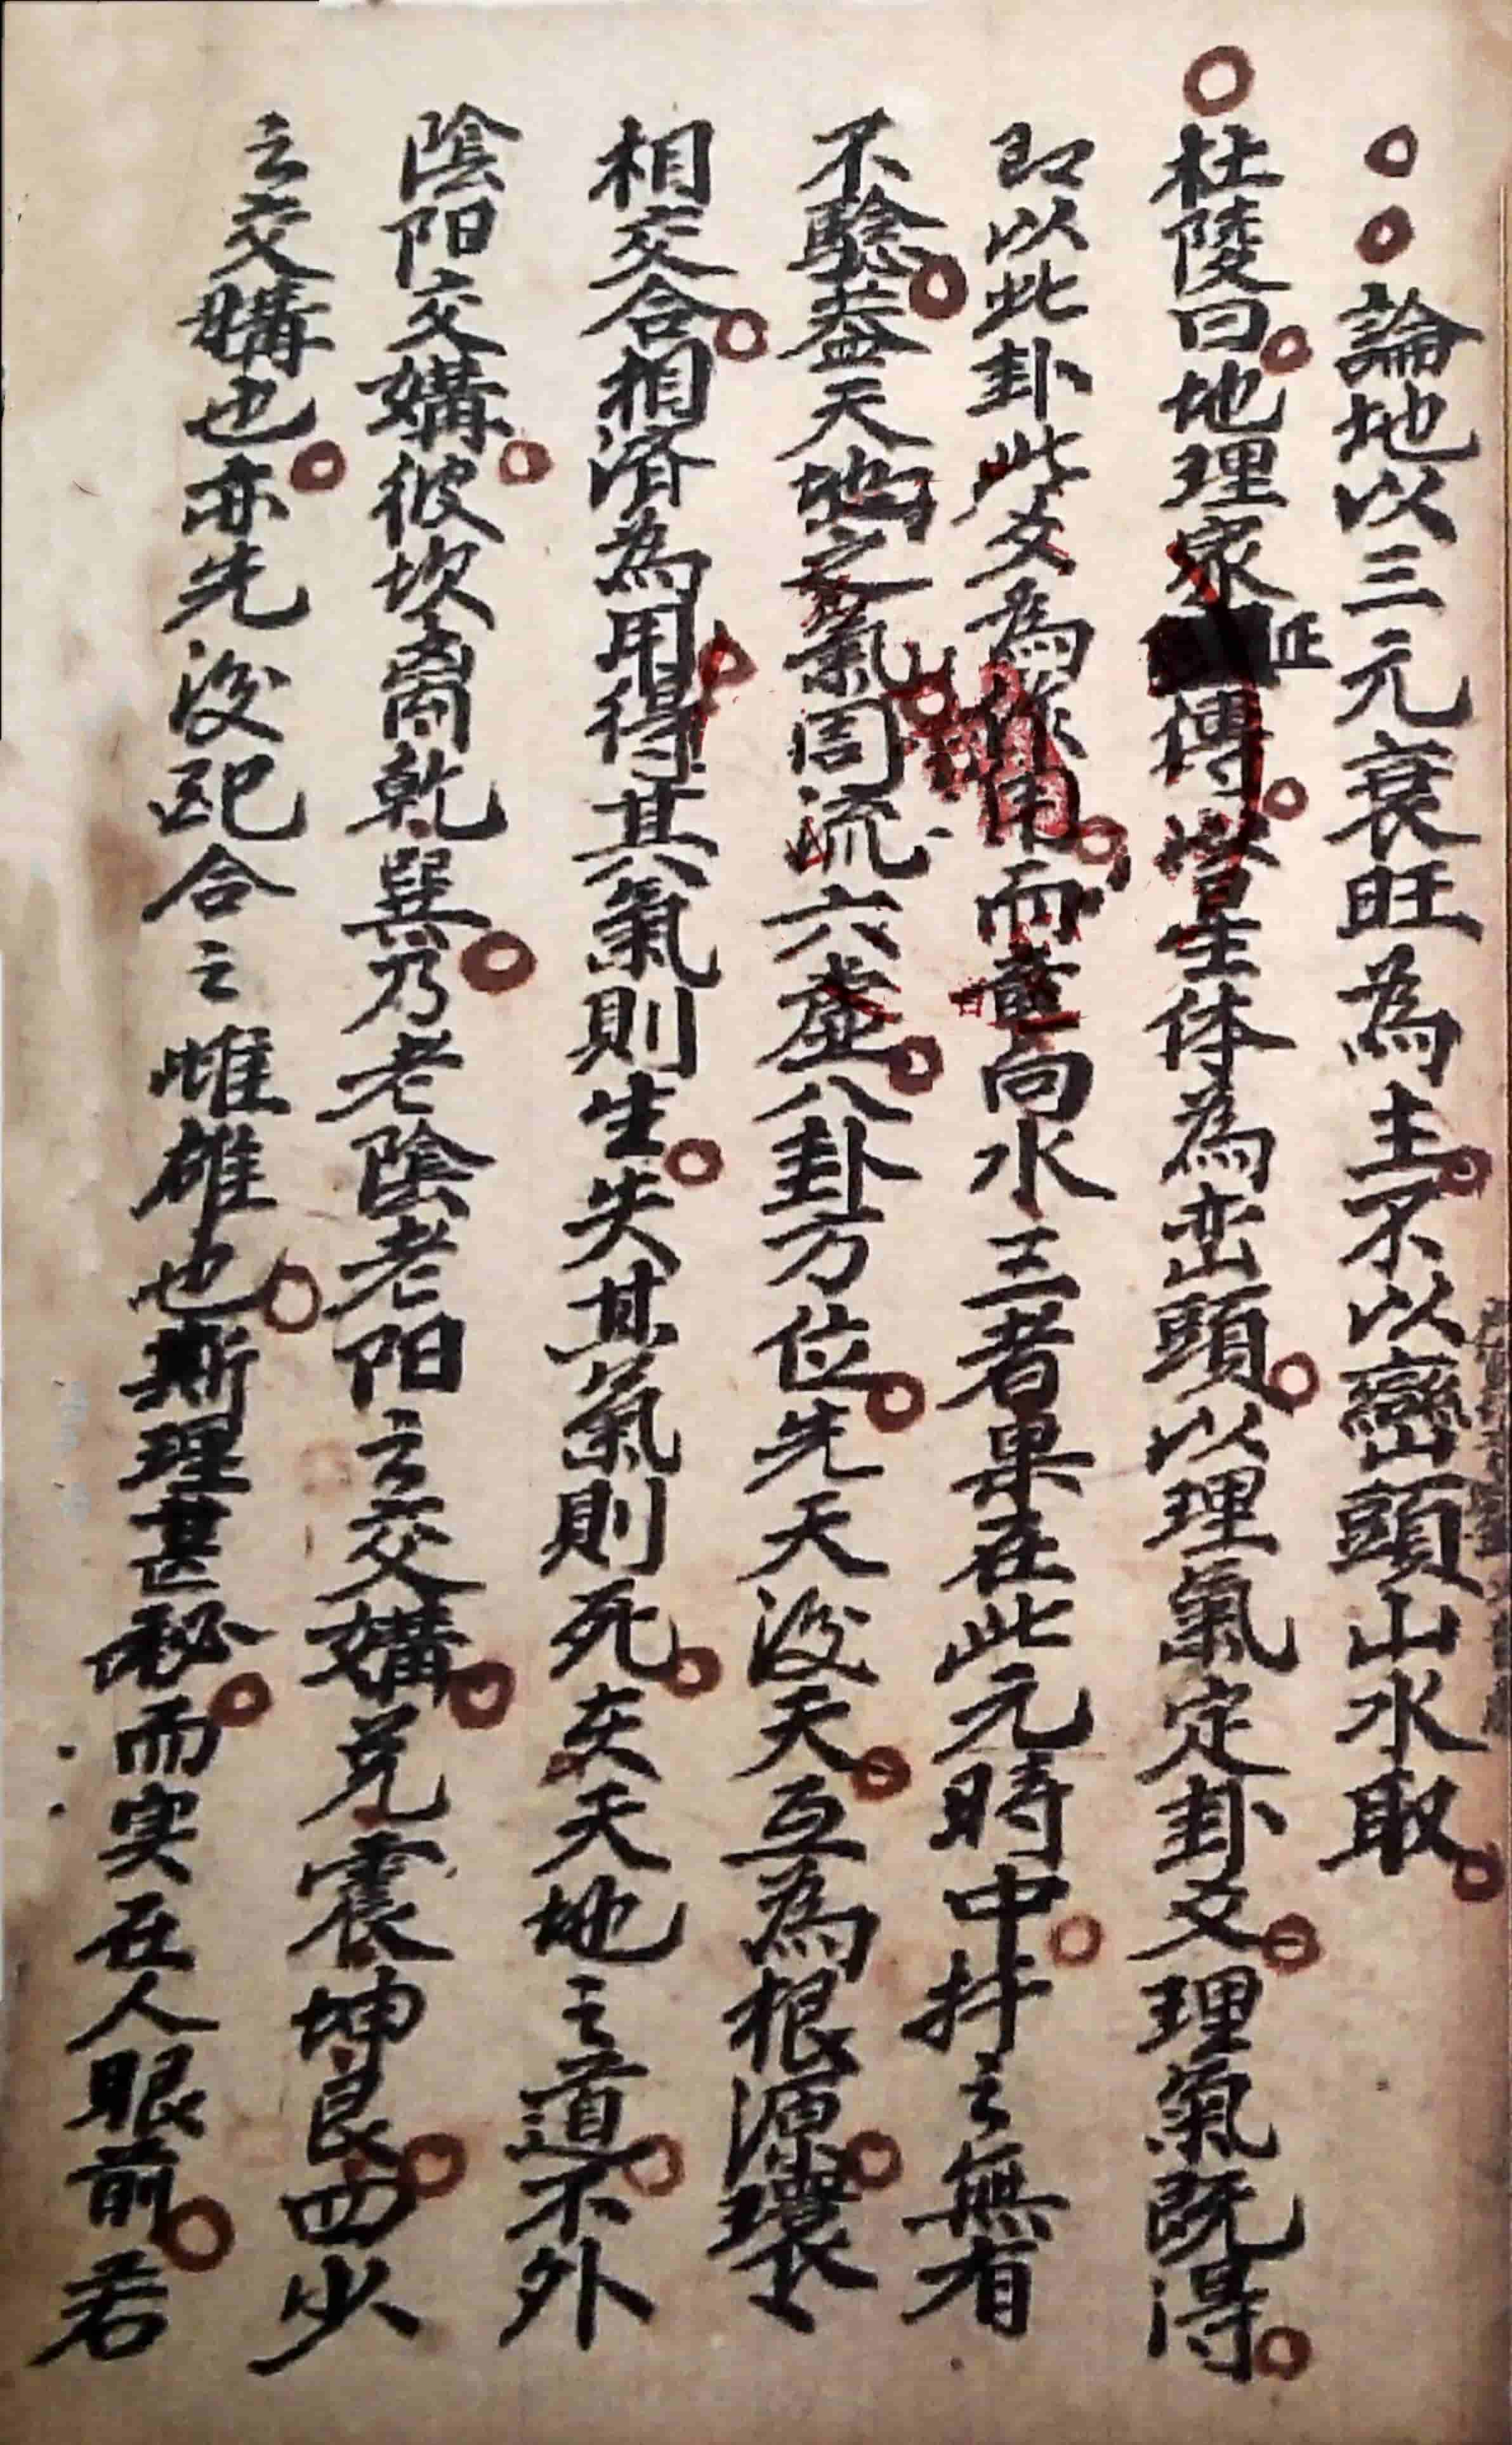 論地以三元衰旺為主不以巒頭山水取
杜陵曰地理家正傳當以星体為峦頭以理氣定卦爻理氣既淂
即以此卦此爻為作用而龍向水三者果在此元時中扦之無有
不驗葢天地之氣周流六虚八卦方位先天后天互為根源環〻
相交合相済為用得其氣則生失其氣則死夫天地之道不外
陰阳交媾彼坎离乾巽乃老陰老阳之交媾兑震坤艮四少
之交媾也亦先后配合之雌雄也斯理甚秘而实在人眼前若